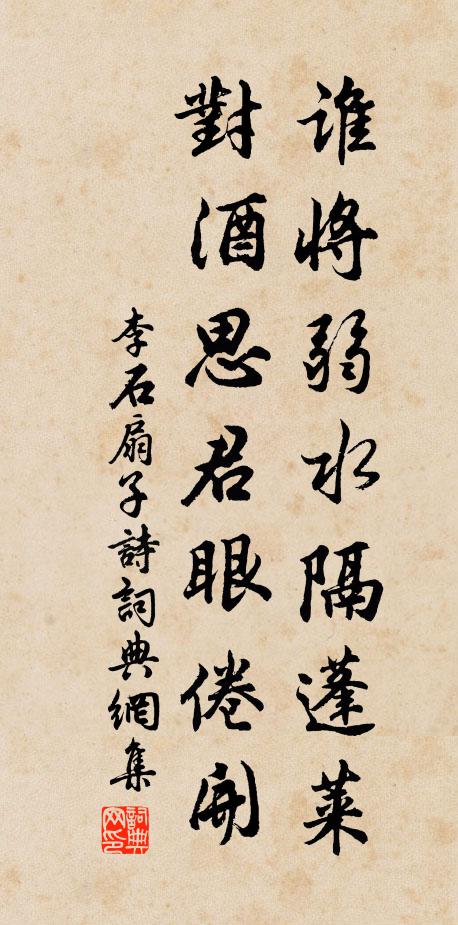 誰將弱水隔蓬萊
對酒思君眼倦開
李石扇子詩詞典網集
詞典
网印